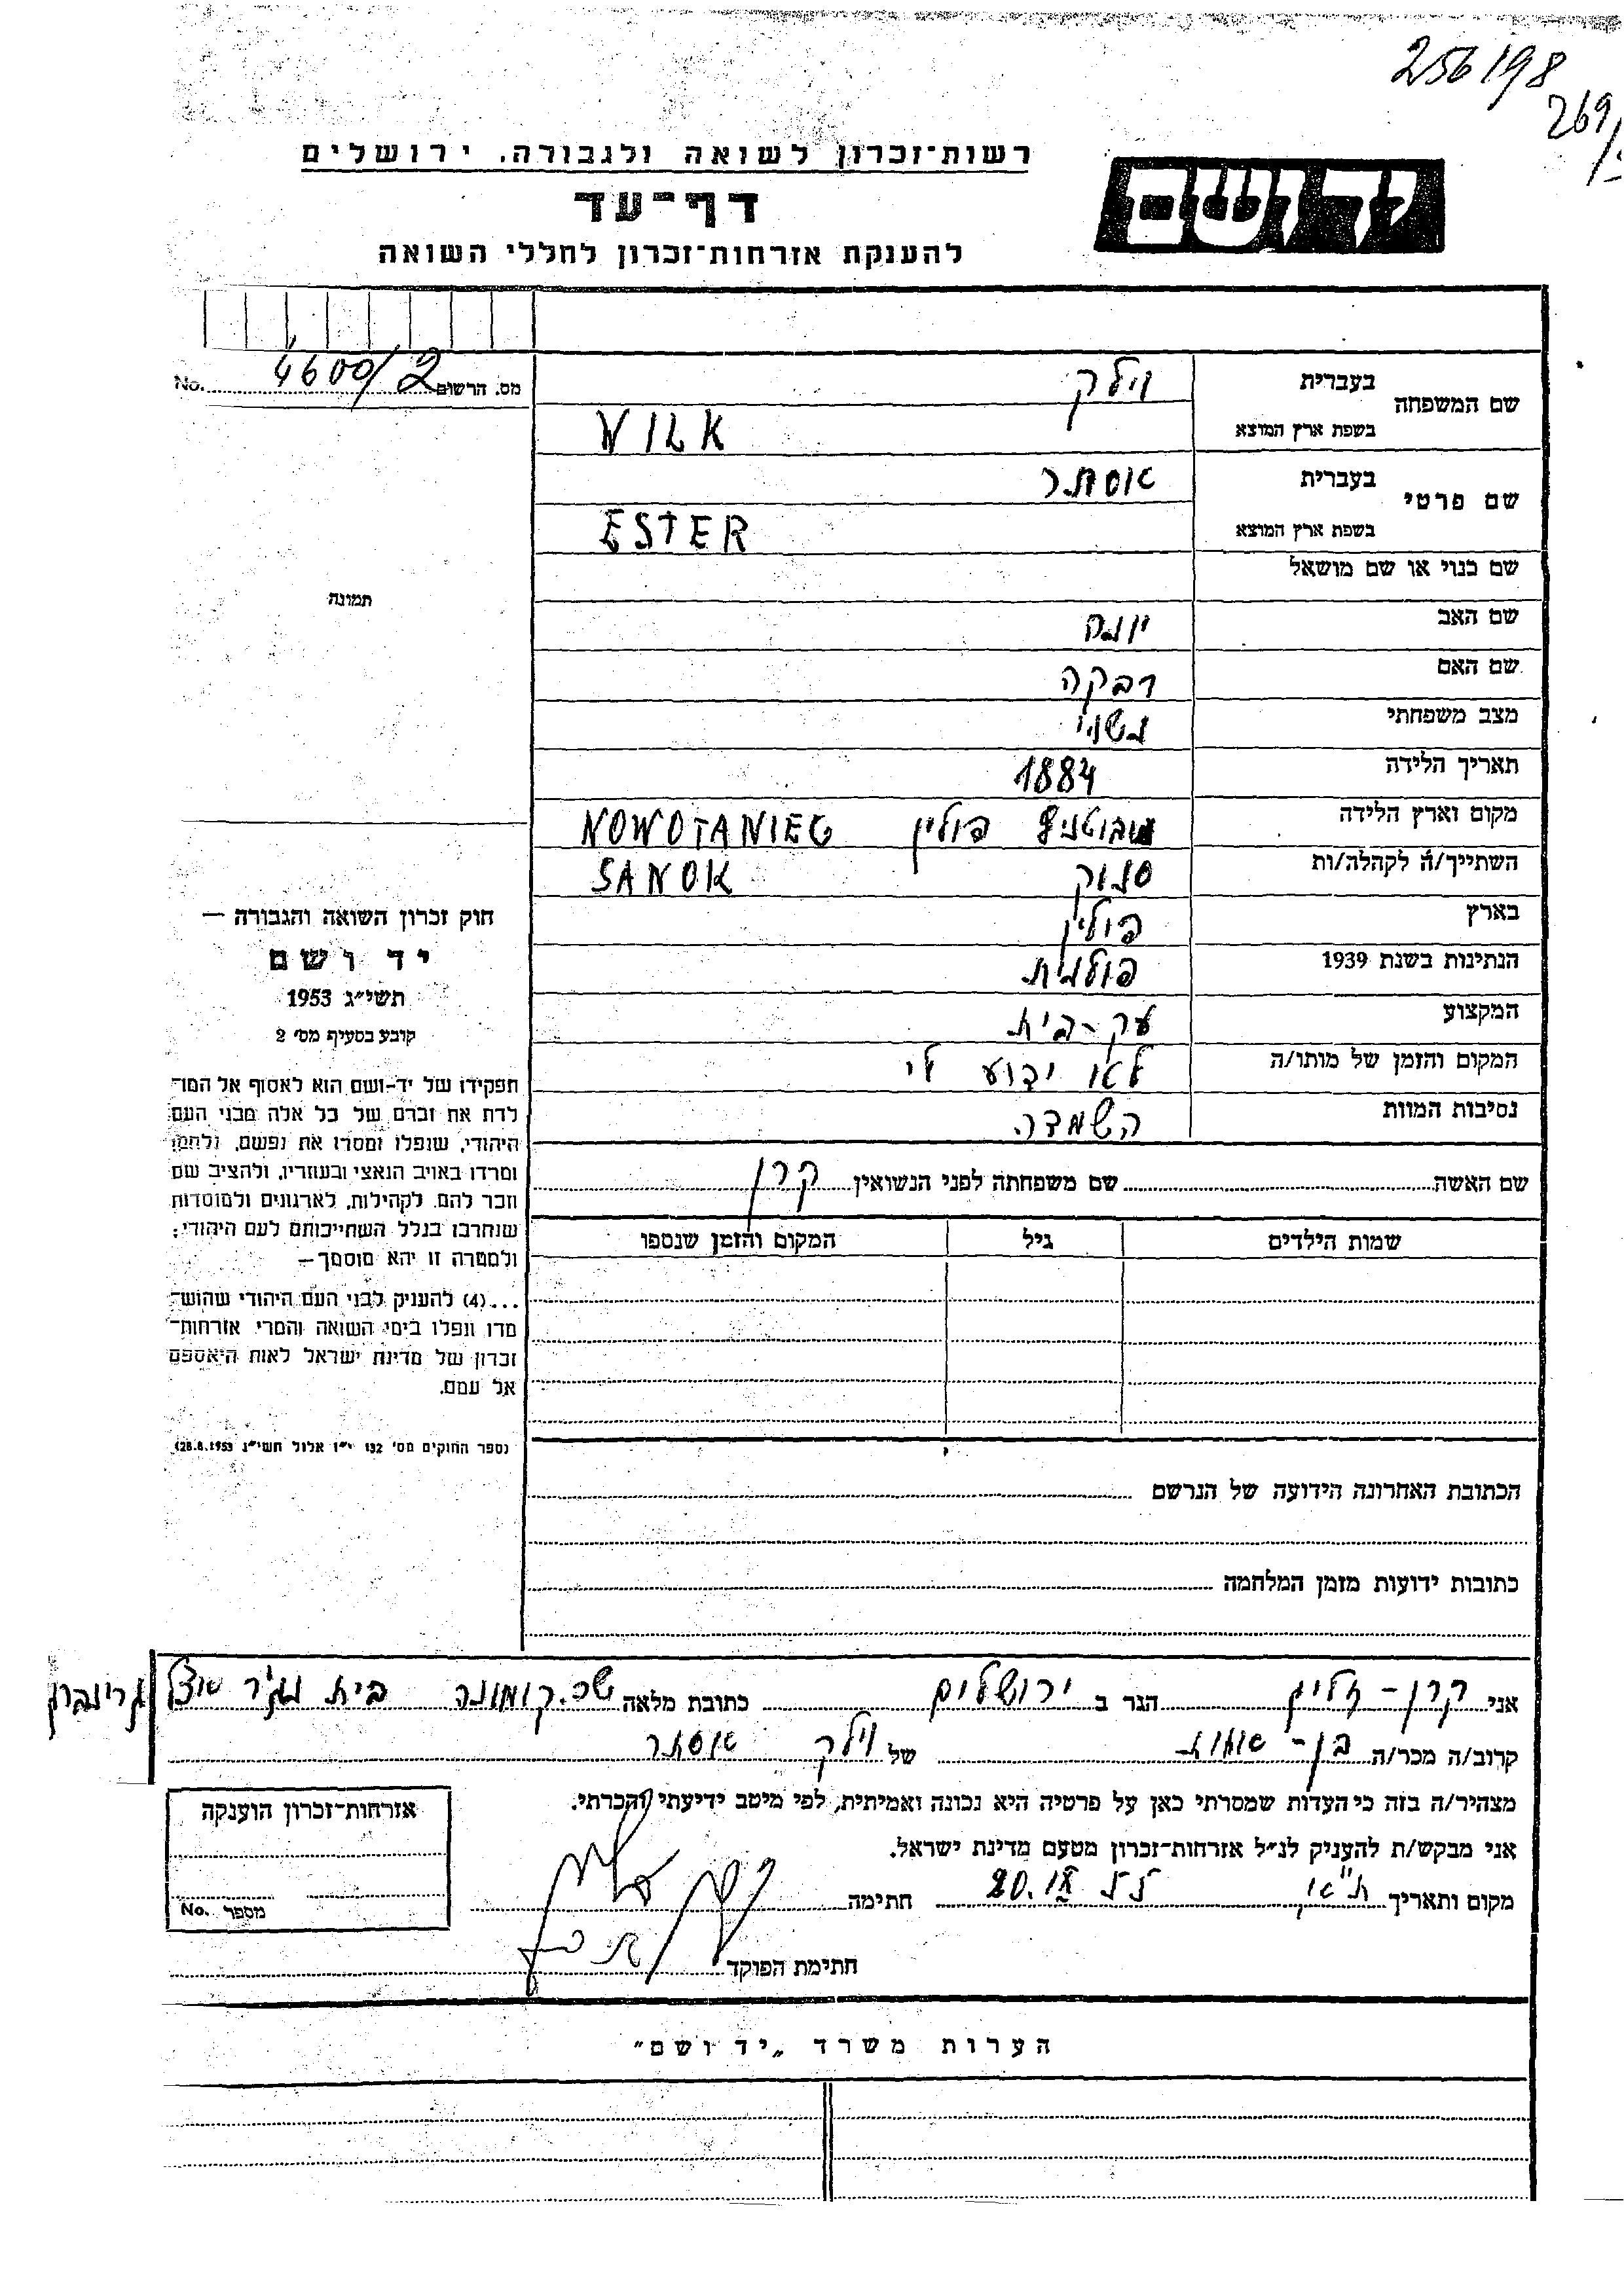 256198
269/
רשות-זכרון לשואה ולגבורה, ירושלים
יד ושם
דף-עד
להענקת אזרחות-זכרון לחללי השואה
מס. הרשום 4600/2 No.
שם המשפחה בעברית וילק
בשפת ארץ המוצא VILK
שם פרטי בעברית אסתר
בשפת ארץ המוצא ESTER
שם כנוי או שם מושאל
שם האב יונה
שם האם רבקה
מצב משפחתי נשוי
תאריך הלידה 1884
מקום וארץ הלידה פולין NOWOTANIEC
השתייך/ה לקהלה/ות סנוק SANOK
בארץ פולין
הנתינות בשנת 1939 פולנית
המקצוע עק-בית
המקום והזמן של מותו/ה לא ידוע לי
נסיבות המוות השמדה
שם האשה שם משפחתה לפני הנשואין קרן
שמות הילדים גיל המקום והזמן שנספו
הכתובת האחרונה הידועה של הנרשם
כתובות ידועות מזמן המלחמה
תמונה
חוק זכרון השואה והגבורה —
יד ושם
תשי״ג 1953
קובע בסעיף מס׳ 2
תפקידו של יד-ושם הוא לאסוף אל המו־
לדת את זכרם של כל אלה מבני העם
היהודי, שנפלו ומסרו את נפשם, נלחמו
ומרדו באויב הנאצי ובעוזריו, ולהציב שם
וזכר להם, לקהילות, לארגונים ולמוסדות
שנחרבו בגלל השתייכותם לעם היהודי;
ולמטרה זו יהא מוסמך—
...(4) להעניק לבני העם היהודי שהוש־
מדו ונפלו בימי השואה והמרי אזרחות־
זכרון של מדינת ישראל לאות היאספם
אל עמם.
(ספר החוקים מס׳ 132 י״ז אלול תשי״ג 28.8.1953)
אני קרן - זליג הגר ב ירושלים כתובת מלאה שכ. קומונה בית
קרוב/ה מכר/ה בן - של וילק אסתר
מצהיר/ה בזה כי העדות שמסרתי כאן על פרטיה היא נכונה ואמיתית, לפי מיטב ידיעתי והכרתי.
אני מבקש/ת להענין לנ״ל אזרחות-זכרון מטעם מדינת ישראל.
מקום ותאריך 20.IX חתימה
חתימת הפוקד
אזרחות-זכרון הוענקה
מספר No.
הערות משרד „יד ושם״